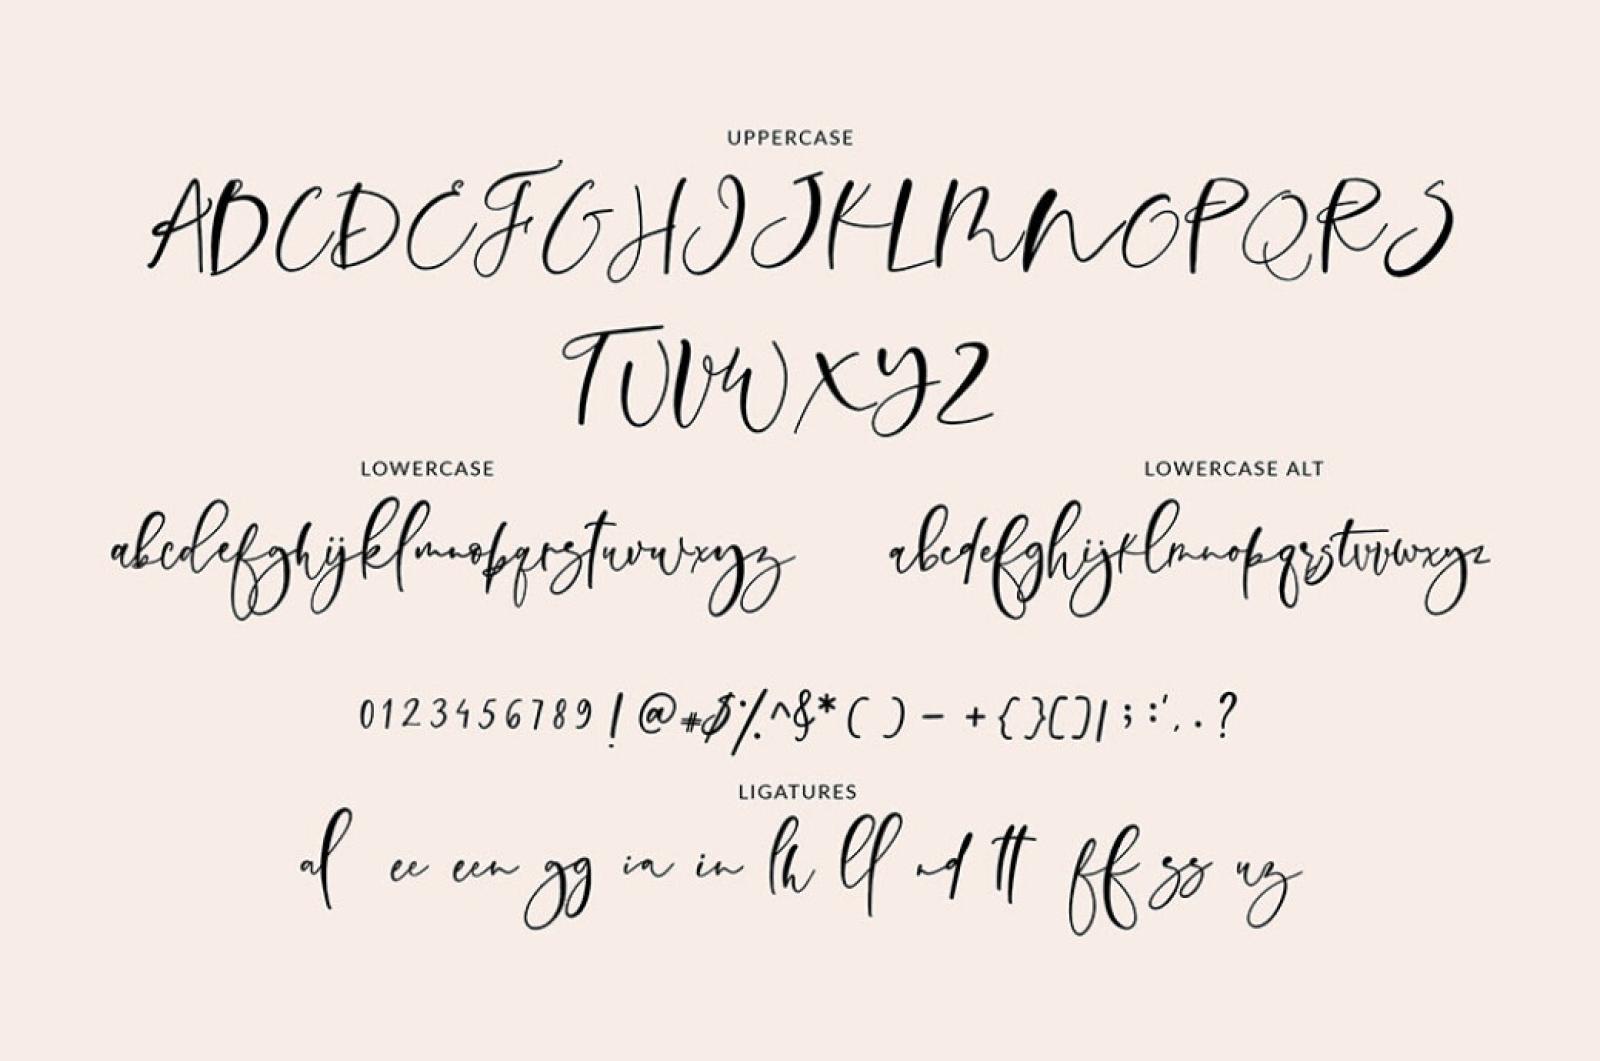 UPPERCASE
ABCDEFGHIJKLMNOPQRS
TUVWXYZ
LOWERCASE
abcdefghijklmnopqrstuvwxyz
LOWERCASE ALT
abcdefghijklmnopqrstuvwxyz
0123456789!@#$%^&*()-+{}[]|;:',.?
LIGATURES
al ee een gg ia in lh ll nd tt ff ss uz